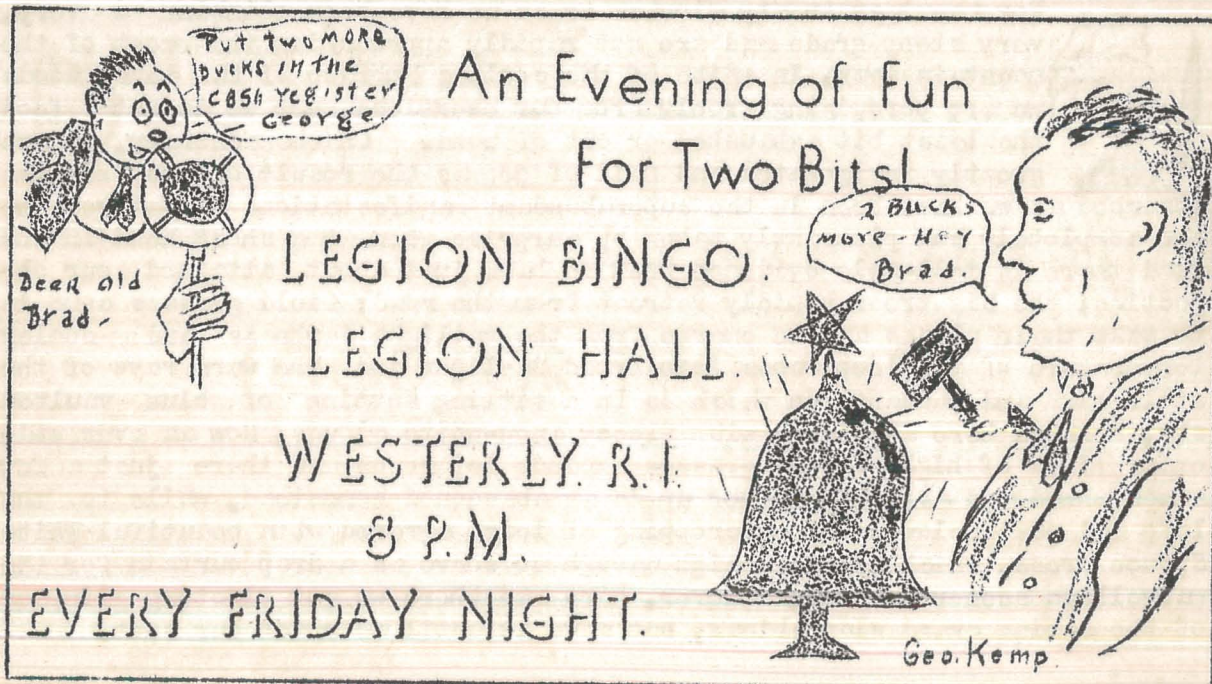 Put two MORE
bucks in the
cash register
George
An Evening of Fun
For Two Bits!
2 BUCKS
more Hey
Brad.
Deer old
Brad-
LEGION BINGO.
LEGION HALL
WESTERLY. R.I.
8 P.M.
EVERY FRIDAY NIGHT.
Geo. Kemp